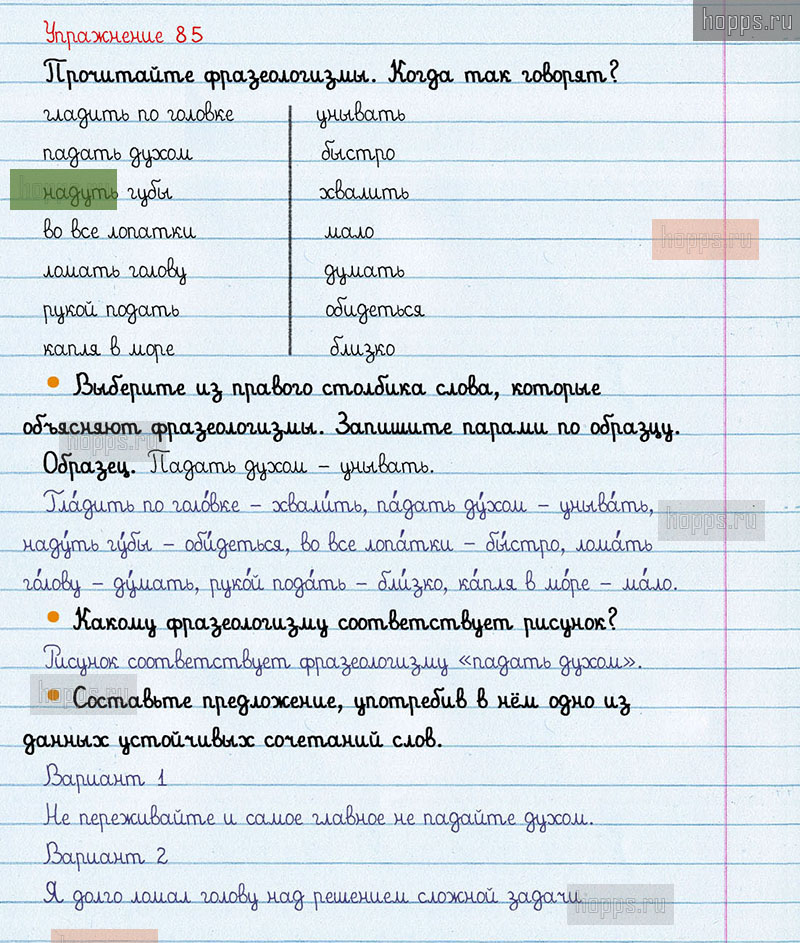 hopps.ru
Упражнение 85
Прочитайте фразеологизмы. Когда так говорят?
гладить по головке унывать
падать духом быстро
надуть губы хвалить
во все лопатки мало
ломать голову думать
рукой подать обидеться
капля в море близко
hopps.ru
• Выберите из правого столбика слова, которые
объясняют фразеологизмы. Запишите парами по образцу.
hopps.ru
Образец. Падать духом – унывать.
Гла́дить по голо́вке – хвали́ть, па́дать ду́хом – уныва́ть,
hopps.ru
наду́ть гу́бы – оби́деться, во все лопа́тки – бы́стро, лома́ть
го́лову – ду́мать, руко́й пода́ть – бли́зко, ка́пля в мо́ре – ма́ло.
• Какому фразеологизму соответствует рисунок?
Рисунок соответствует фразеологизму «падать духом».
hopps.ru
• Составьте предложение, употребив в нём одно из
данных устойчивых сочетаний слов.
Вариант 1
Не переживайте и самое главное не падайте духом.
Вариант 2
Я долго ломал голову над решением сложной задачи
hopps.ru